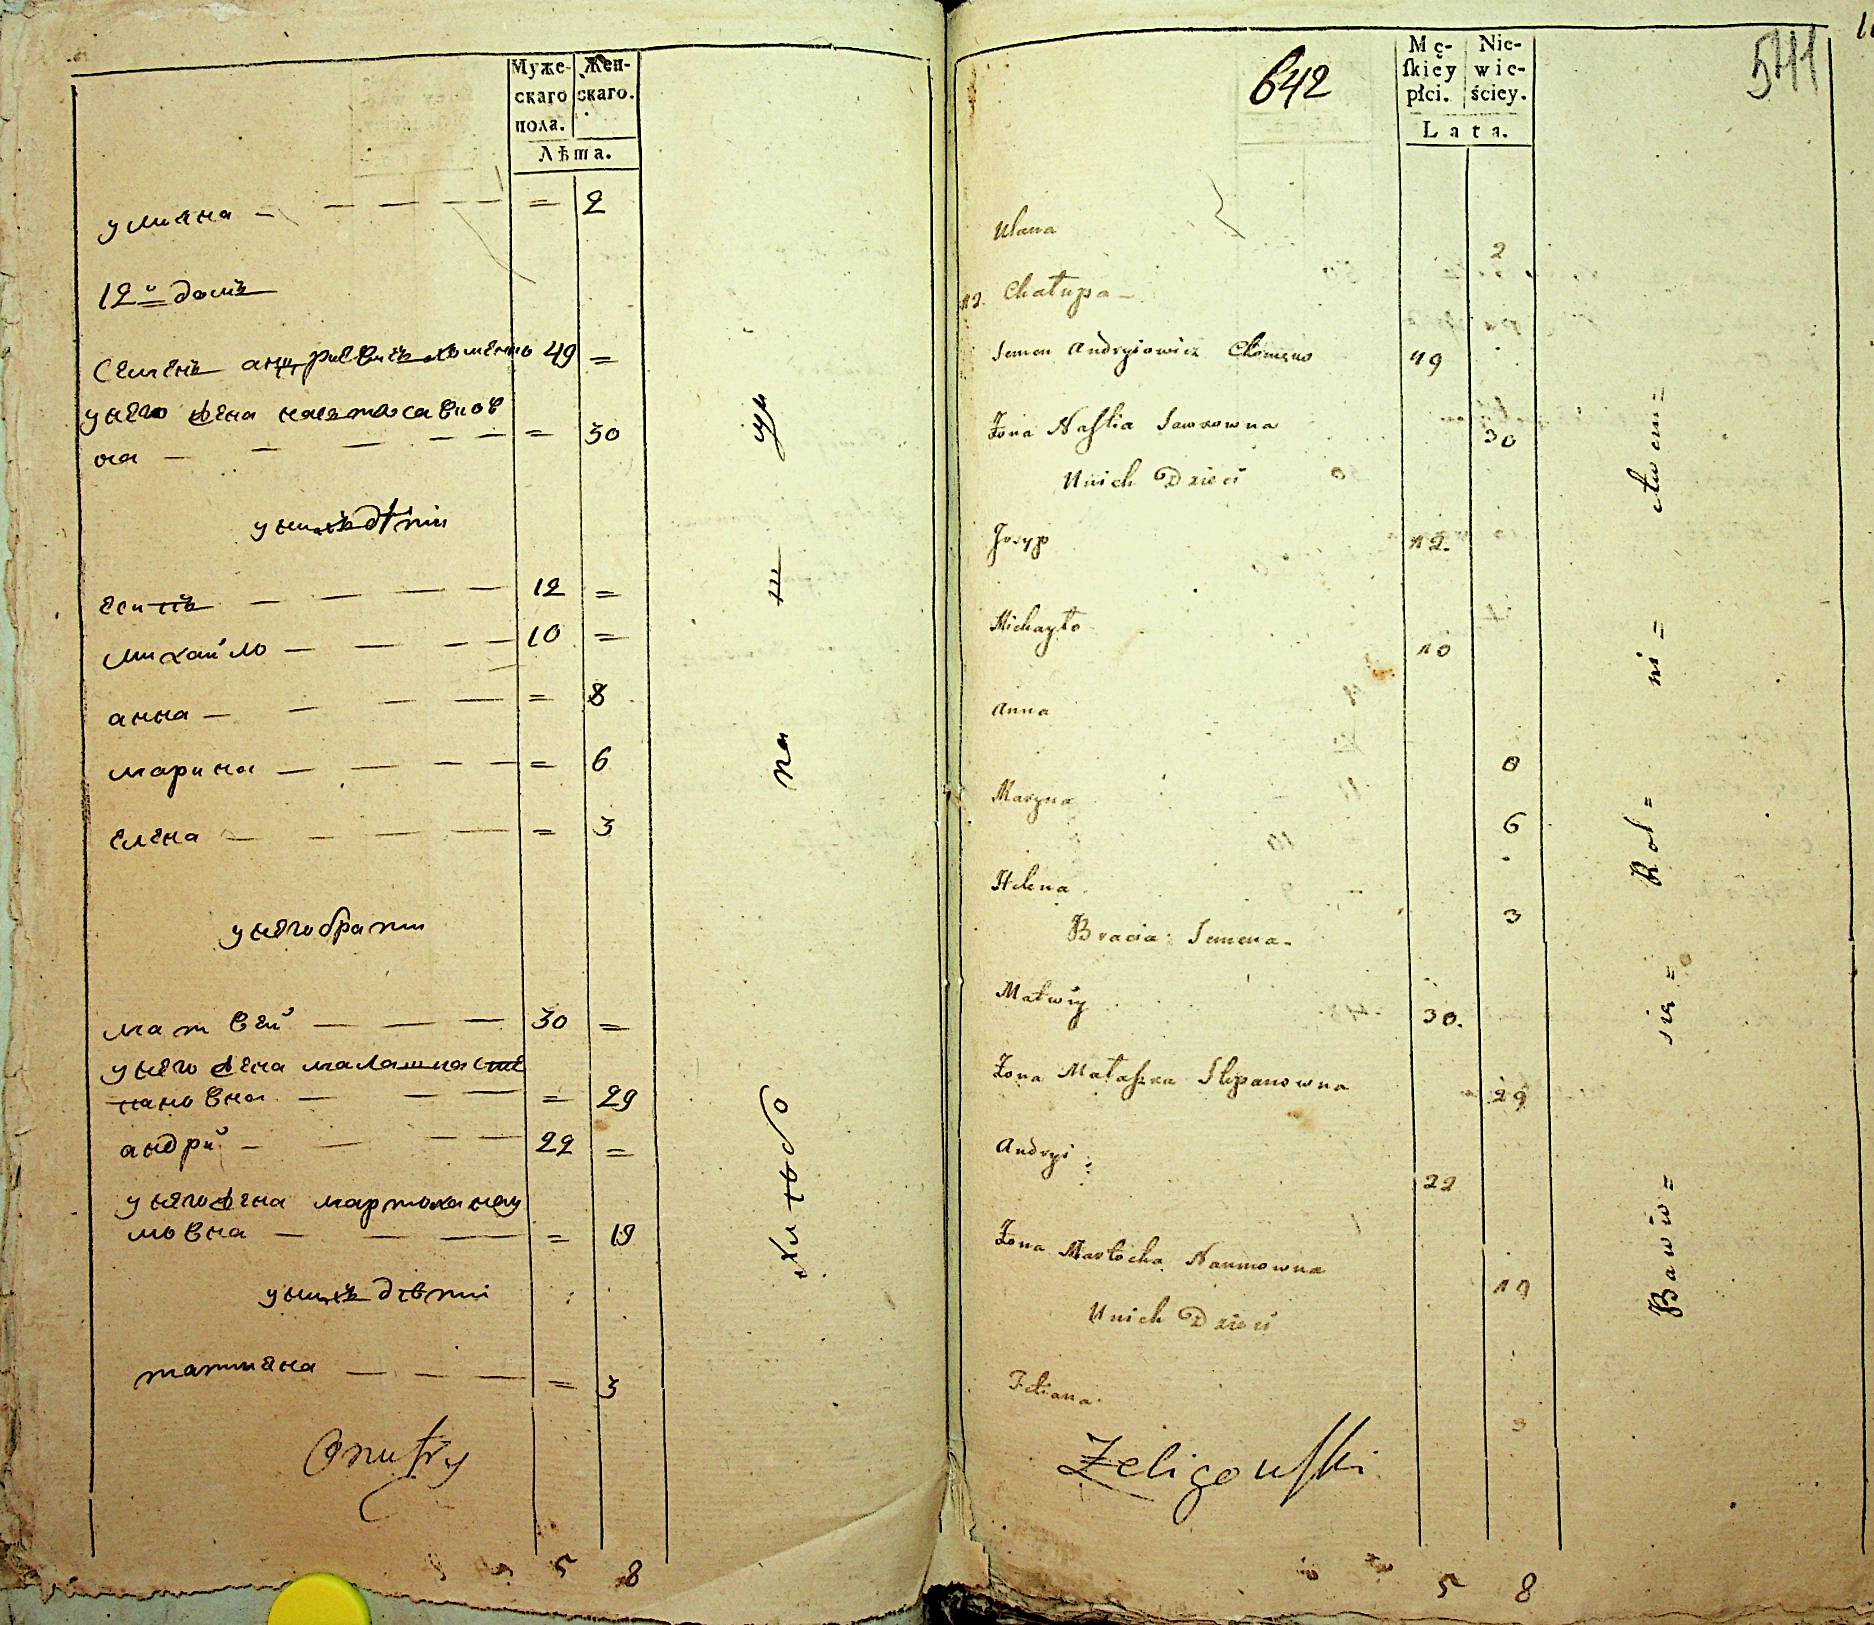 Муже- Жен-
скаго скаго.
пола.
Лѣта.
улияна = 2
12й домъ
Семенъ андриевичъ хоменко 49 =
унего жена настя савков
на = 30
унихъ дѣти
есипъ 12 =
михайло 10 =
анна = 8
марина = 6
елена = 3
унего брати
матвей 30 =
унего жена малашка сте
пановна = 29
андрий 22 =
унего жена мартоха нау
мовна = 19
унихъ дѣти
татияна = 3
Хлѣбо па ш ци
5 8
642
541
Mę- Nie-
ſkiey wie-
płci. ściey.
Lata.
Ulana 2
12. Chałupa
Semen Andryiowicz Chomęko 49
Żona Naſtia Sawkowna 30
Unich Dzieci
Josyp 12.
Michayło 10
Anna 8
Maryna 6
Helena 3
Bracia Semena
Matwiy 30.
Żona Małaſzka Stepanowna 29
Andryi 22
Żona Martocha Naumowna 19
Unich Dzieci
Tetiana 3
Żeligowſki
Bawiw= się= Rol= ni= ctwem=
5 8